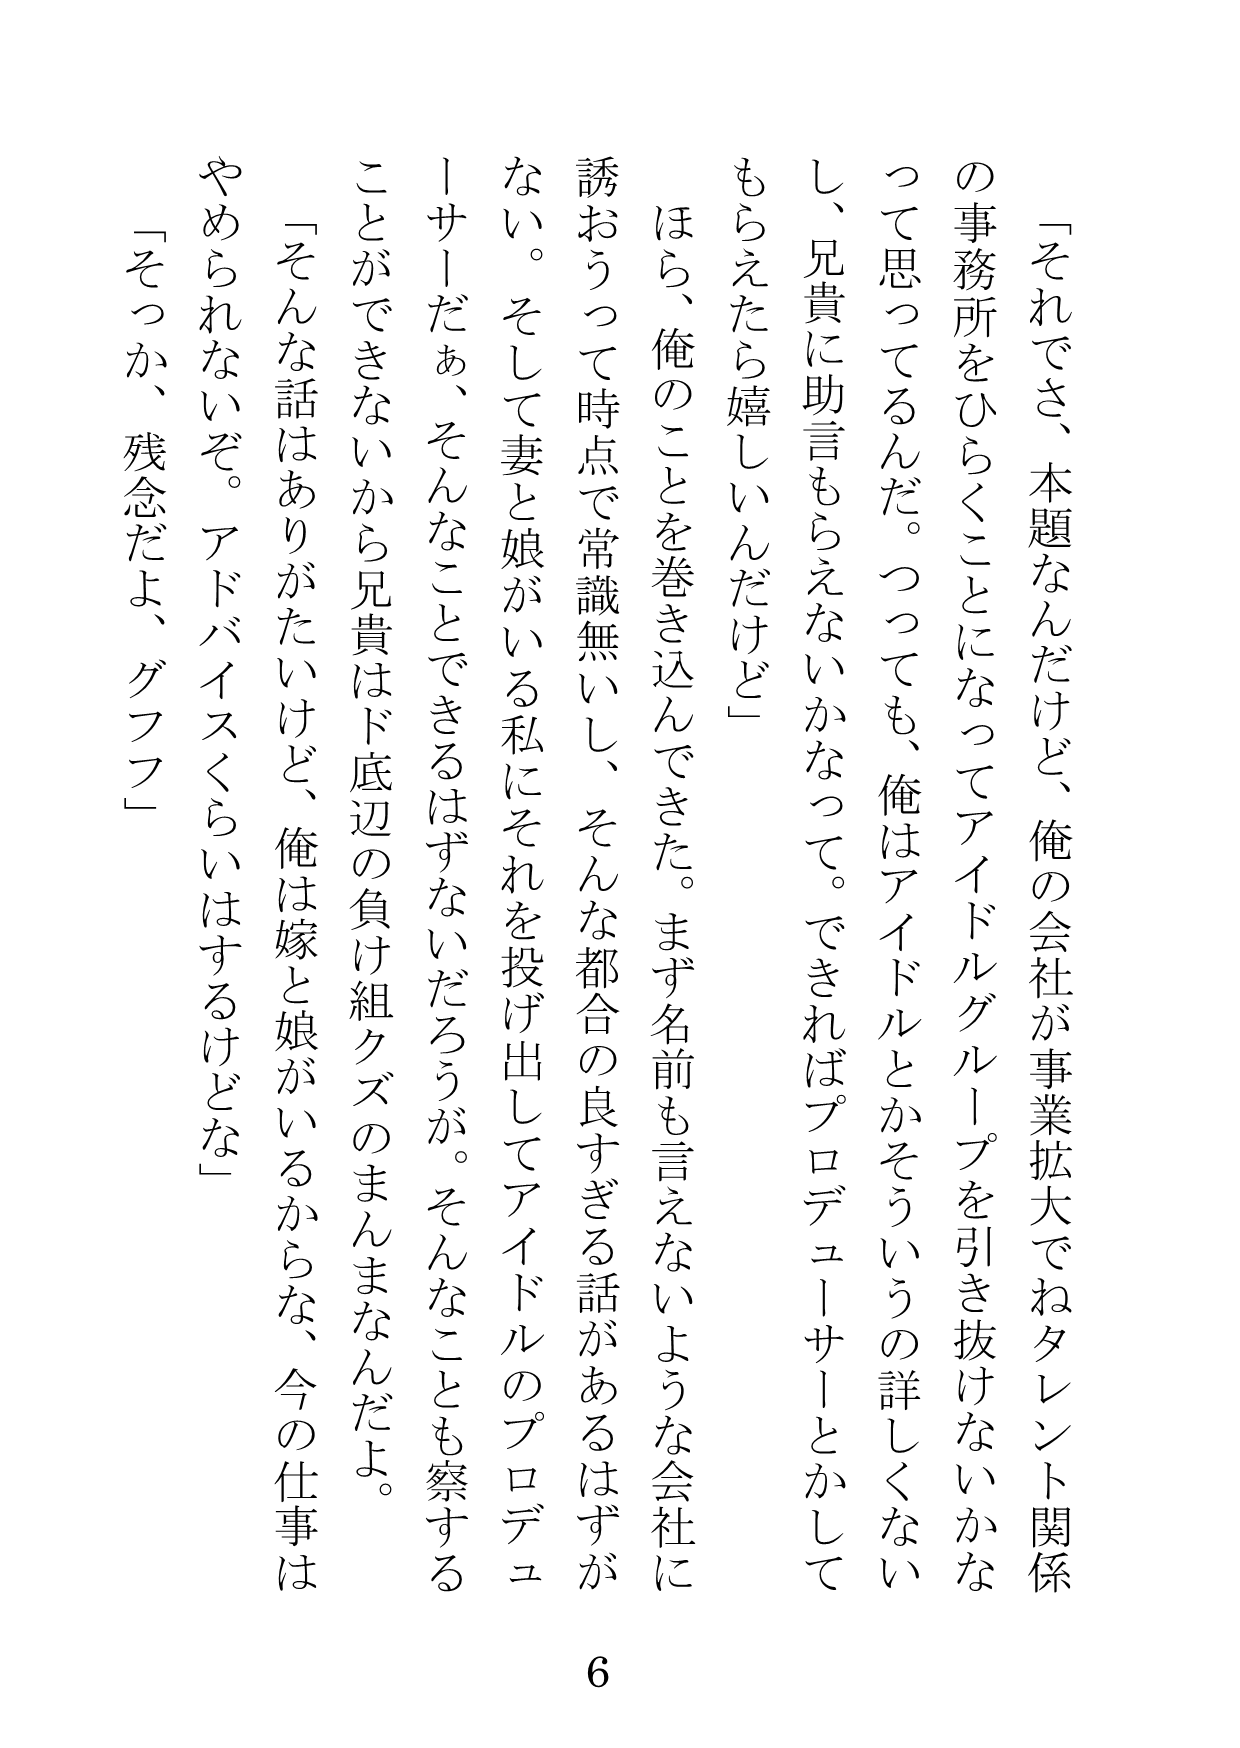 「それでさ、本題なんだけど、俺の会社が事業拡大でねタレント関係
の事務所をひらくことになってアイドルグループを引き抜けないかな
って思ってるんだ。つっても、俺はアイドルとかそういうの詳しくない
し、兄貴に助言もらえないかなって。できればプロデューサーとかして
もらえたら嬉しいんだけど」
ほら、俺のことを巻き込んできた。まず名前も言えないような会社に
誘おうって時点で常識無いし、そんな都合の良すぎる話があるはずが
ない。そして妻と娘がいる私にそれを投げ出してアイドルのプロデュ
ーサーだぁ、そんなことできるはずないだろうが。そんなことも察する
ことができないから兄貴はド底辺の負け組クズのまんまなんだよ。
「そんな話はありがたいけど、俺は嫁と娘がいるからな、今の仕事は
やめられないぞ。アドバイスくらいはするけどな」
「そっか、残念だよ、グフフ」
6